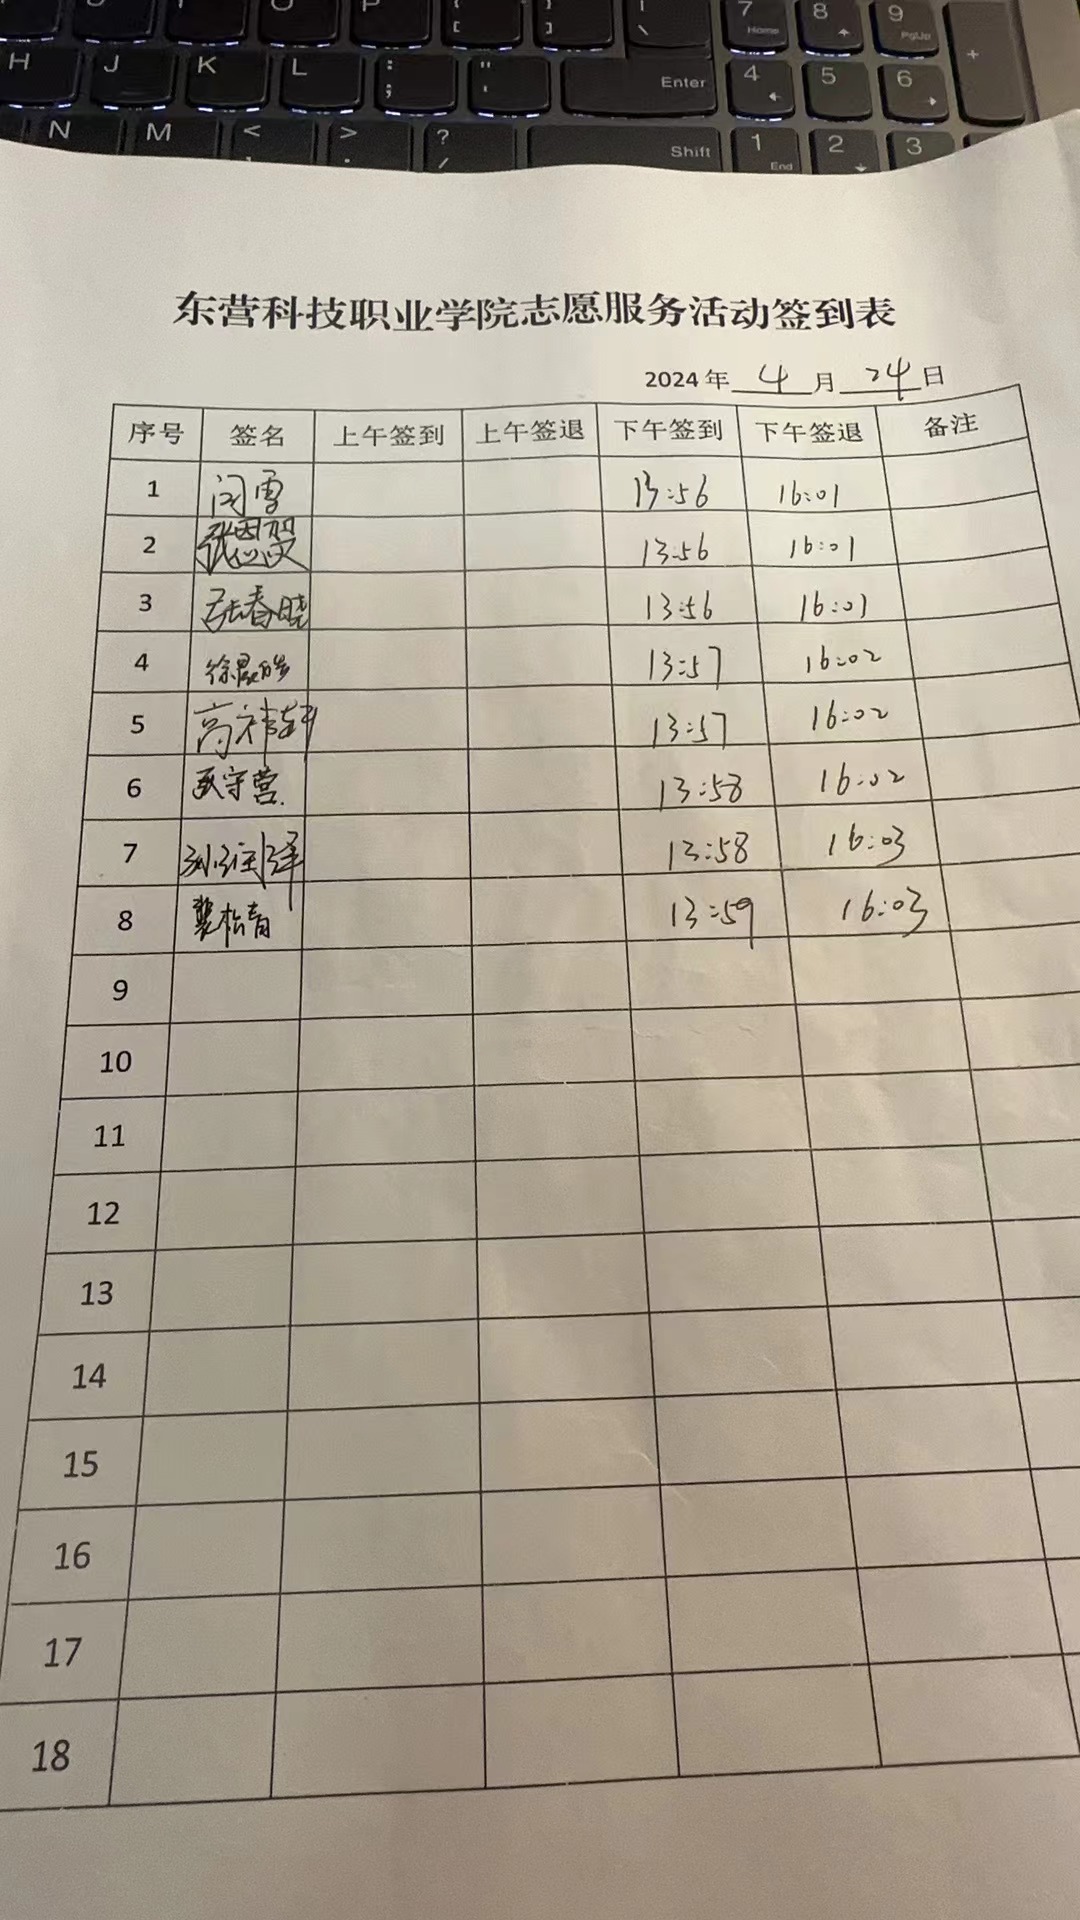 7 8 9
Home PgUp
H J K L : ; " ' Enter 4 5 6 +
N M < > ? / Shift 1 2 3
End
东营科技职业学院志愿服务活动签到表
2024 年 4 月 24 日
序号 签名 上午签到 上午签退 下午签到 下午签退 备注
1 闫雪 13:56 16:01
2 13:56 16:01
3 张春晓 13:56 16:01
4 13:57 16:02
5 13:57 16:02
6 13:58 16:02
7 13:58 16:03
8 裴松青 13:59 16:03
9
10
11
12
13
14
15
16
17
18